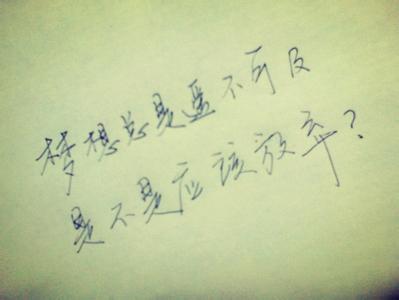 梦想总是遥不可及
是不是应该放弃?